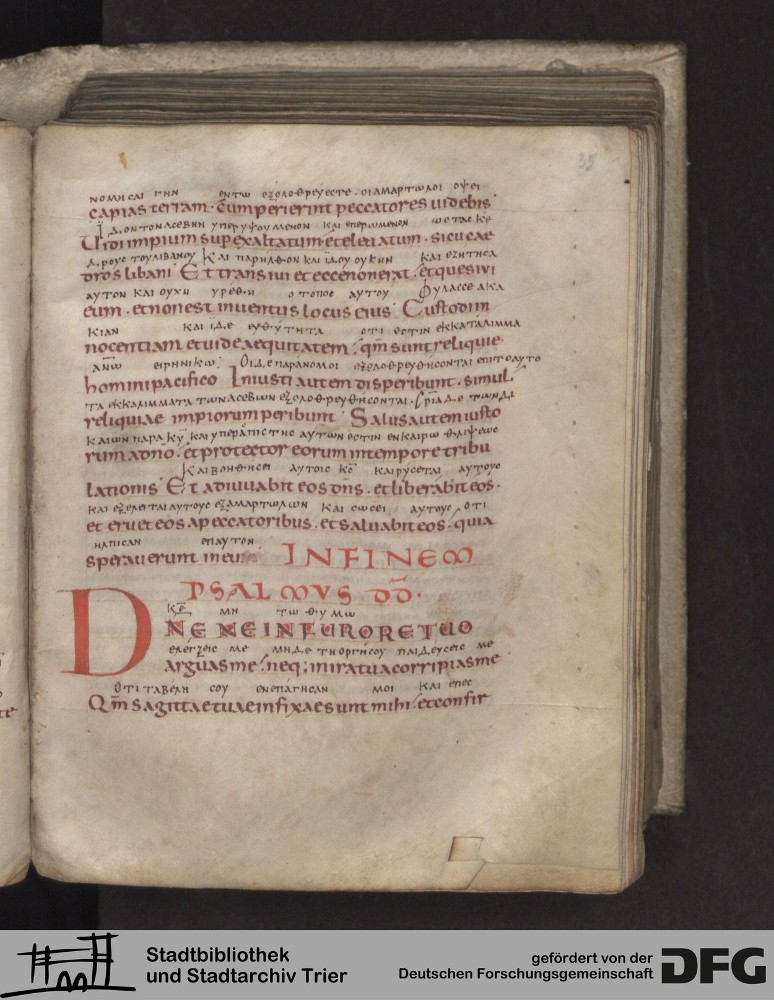 35
ΝΟΜΗCΑΙ ΓΗΝ ΕΝΤω ΕξΟΛΟΘΡΕΥΕCΤΕ · ΟΙΑΜΑΡΤωΛΟΙ ΟΨΕΙ
capias terram · Cum perierint peccatores uidebis
ΪΔΟΝΤΟΝΑCΕΒΗΝ ΥΠΕΡΥΨΟΥΜΕΝΟΝ ΚΑΙ ΕΠΕΡωΜΕΝΟΝ ωCΤΑC ΚΕ
Uidi impium superexaltatum · et eleuatum · sicut cae
ΔΡΟΥC ΤΟΥΛΙΒΑΝΟΥ ΚΑΙ ΠΑΡΗΛΘΟΝ ΚΑΙ ΪΔΟΥ ΟΥΚΗΝ ΚΑΙ ΕΖΗΤΗCΑ
dros libani · Et transiui et ecce non erat · et quesiui
ΑΥΤΟΝ ΚΑΙ ΟΥΧΗ ΥΡΕΘΗ Ο ΤΟΠΟC ΑΥΤΟΥ ΦΥΛΑCCΕ ΑΚΑ
eum · et non est inuentus locus eius · Custodi in
ΚΙΑΝ ΚΑΙ ΪΔΕ ΕΥΘΥΤΗΤΑ ΟΤΙ ΕCΤΙΝ ΕΚΚΑΤΑΛΙΜΜΑ
nocentiam et uide aequitatem · qm̄ sunt reliquie
ΑΝω ΕΙΡΗΝΙΚω ΟΙΔΕ ΠΑΡΑΝΟΜΟΙ ΕξΟΛΟΘΡΕΥΘΗCΟΝΤΑΙ ΕΠΙΤΟΑΥΤΟ
homini pacifico Iniusti autem disperibunt · simul
ΤΑ ΕΚΚΑΛΙΜΜΑΤΑ ΤωΝΑCΕΒωΝ ΕξΟΛΟΘΡΕΥΘΗCΟΝΤΑΙ · CΡΙΑ ΔΕ ΤωΝΔΙ
reliquiae impiorum peribunt · Salus autem iusto
ΚΑΙωΝ ΠΑΡΑ ΚΥ ΚΑΙ ΥΠΕΡΑΠΙCΤΗC ΑΥΤωΝ ΕCΤΙΝ ΕΝ ΚΑΙΡω ΘΛΙΨΕωC
rum a dno · et protector eorum in tempore tribu
ΚΑΙ ΒΟΗΘΗCΕΙ ΑΥΤΟΙC ΚC ΚΑΙ ΡΥCΕΤΑΙ ΑΥΤΟΥC
lationis · Et adiuuabit eos dn̄s · et liberabit eos ·
ΚΑΙ ΕξΕΛΕΙΤΑΙ ΑΥΤΟΥC ΕξΑΜΑΡΤωΛωΝ ΚΑΙ CωCΕΙ ΑΥΤΟΥC ΟΤΙ
et eruet eos a peccatoribus · et saluabit eos · quia
ΗΛΠΙCΑΝ ΕΠΑΥΤΟΝ
sperauerunt in eum INFINEM
PSALMVS DD̄ ·
ΚΕ ΜΗ Τω ΘΥΜω
DNE NE IN FURORE TUO
ΕΛΕΓξΕΙC ΜΕ ΜΗΔΕ ΤΗ ΟΡΓΗCΟΥ ΠΑΙΔΕΥCΕΙC ΜΕ
arguas me · neq; in ira tua corripias me
ΟΤΙ ΤΑΒΕΛΗ CΟΥ ΕΝΕΠΑΓΗCΑΝ ΜΟΙ ΚΑΙ ΕΠΕC
Qm̄ sagittae tuae infixae sunt mihi · et confir
Stadtbibliothek
und Stadtarchiv Trier
gefördert von der
Deutschen Forschungsgemeinschaft DFG